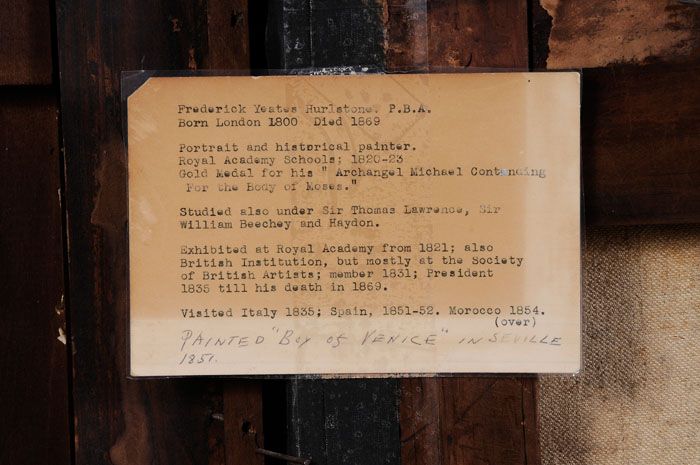 Frederick Yeates Hurlstone. P.B.A.
Born London 1800  Died 1869
Portrait and historical painter.
Royal Academy Schools; 1820-23
Gold Medal for his " Archangel Michael Contending
For the Body of Moses."
Studied also under Sir Thomas Lawrence, Sir
William Beechey and Haydon.
Exhibited at Royal Academy from 1821; also
British Institution, but mostly at the Society
of British Artists; member 1831; President
1835 till his death in 1869.
Visited Italy 1835; Spain, 1851-52. Morocco 1854.
(over)
PAINTED "BOY of VENICE" IN SEVILLE
1851.